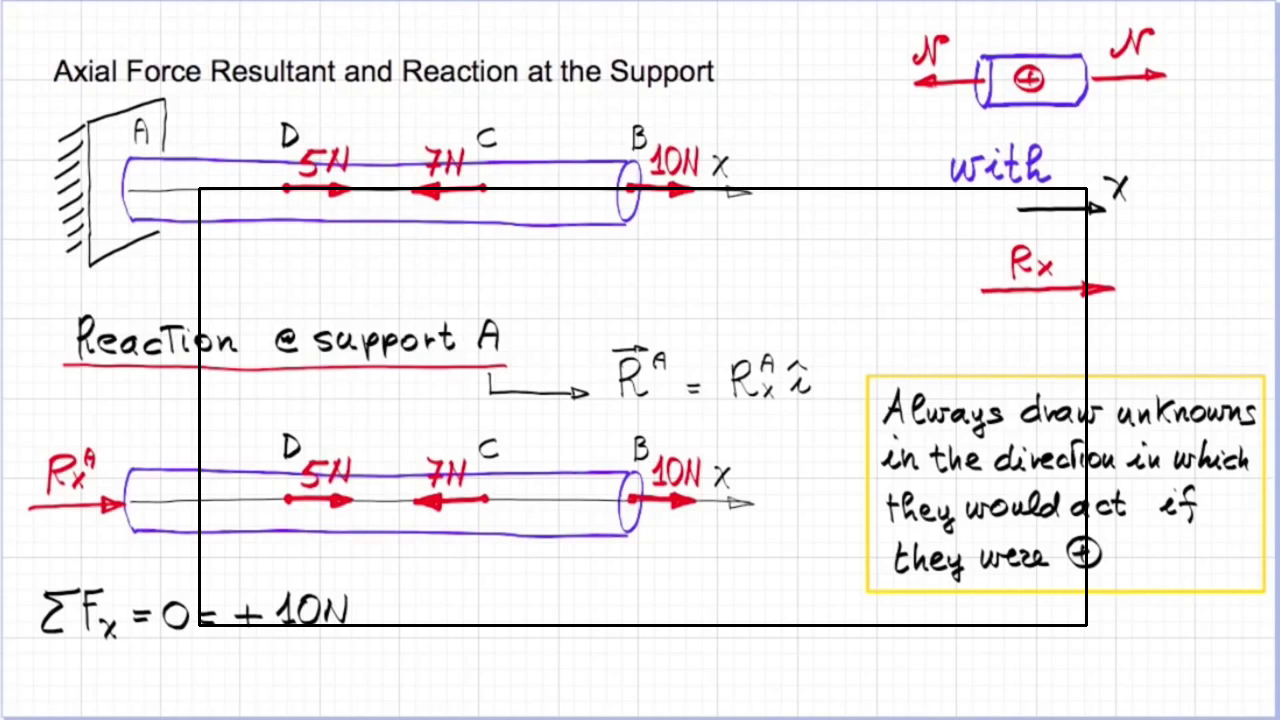 Axial Force Resultant and Reaction at the Support
N
N
A
D
5N
7N
C
B
10N
x
with
x
Rx
Reaction @ support A
R^A = Rx^A î
Always draw unknowns
in the direction in which
they would act if
they were ⊕
Rx^A
D
5N
7N
C
B
10N
x
ΣFx = 0 = + 10N